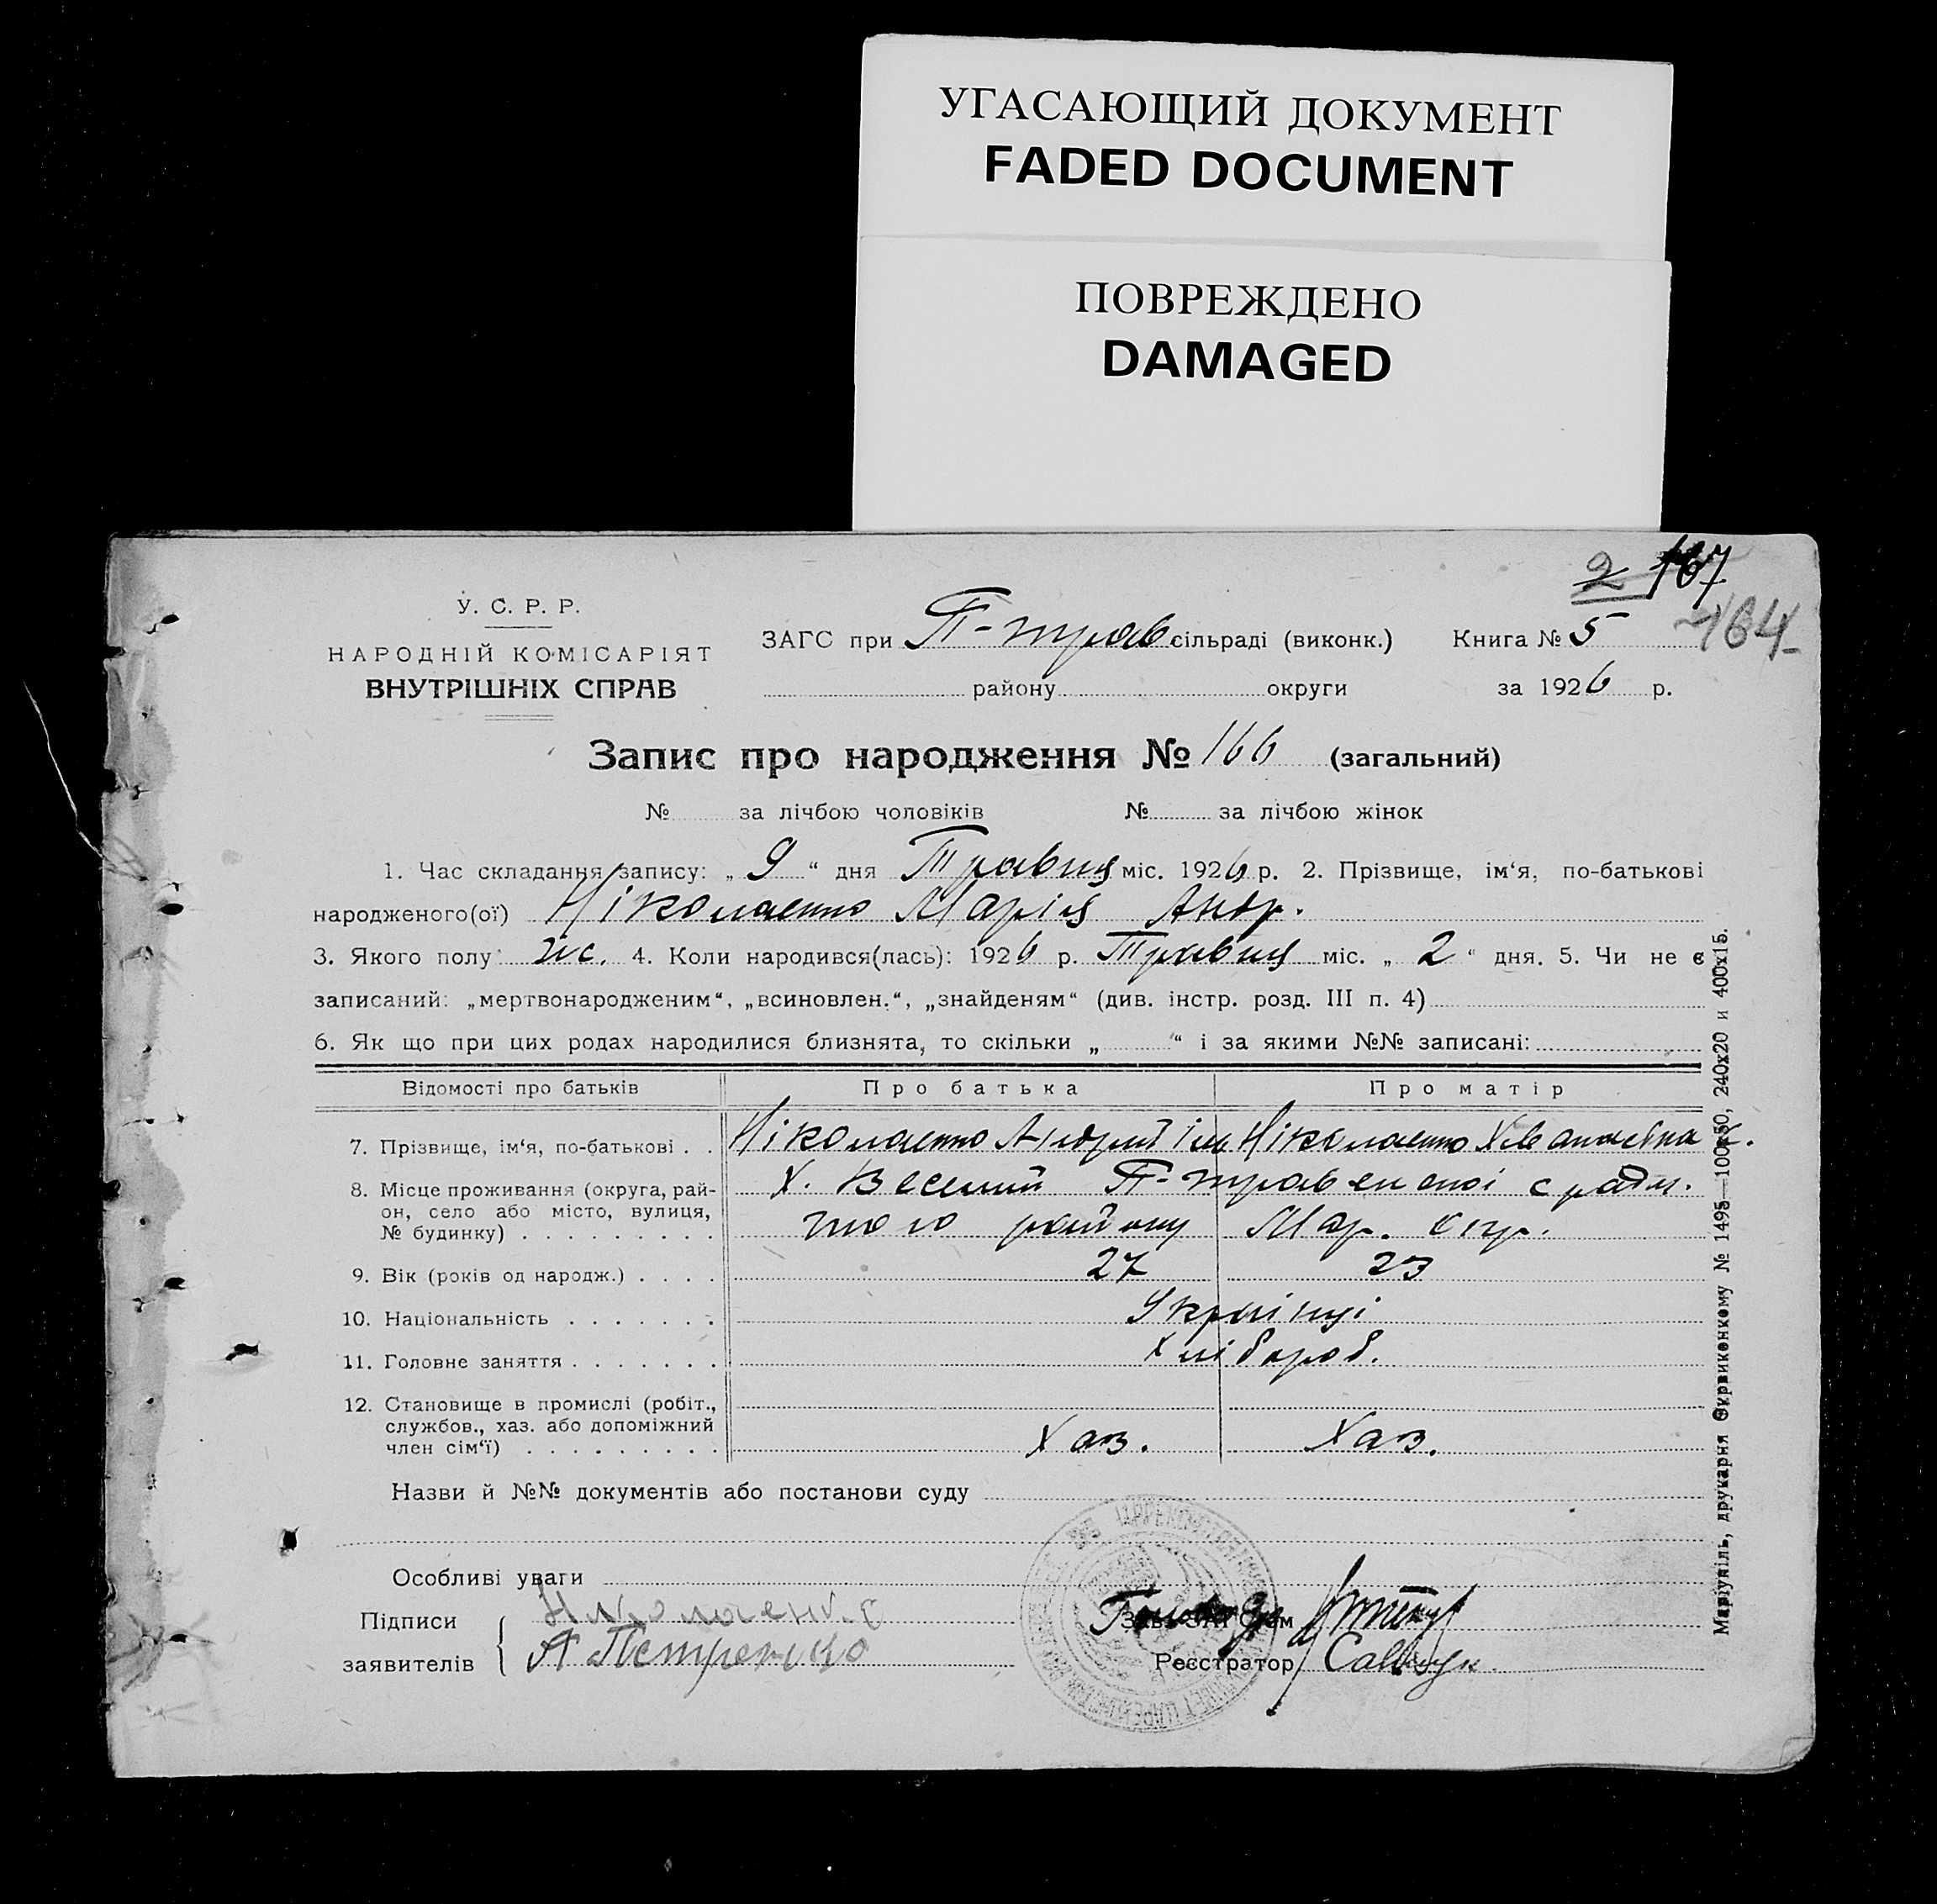 УГАСАЮЩИЙ ДОКУМЕНТ
FADED DOCUMENT
ПОВРЕЖДЕНО
DAMAGED
2 167
164
У. С. Р. Р.
НАРОДНІЙ КОМІСАРІЯТ
ВНУТРІШНІХ СПРАВ
ЗАГС при П-трав сільраді (виконк.) Книга № 5
району округи за 1926 р.
Запис про народження № 166 (загальний)
№ за лічбою чоловіків № за лічбою жінок
1. Час складання запису: „ 9 “ дня Травня міс. 1926 р. 2. Прізвище, ім‘я, по-батькові
народженого(ої) Ніколаєнко Марія Андр.
3. Якого полу: жс. 4. Коли народився(лась): 1926 р. Травня міс. „ 2 “ дня. 5. Чи не є
записаний: „мертвонародженим“, „всиновлен.“, „знайденям“ (див. інстр. розд. III п. 4)
6. Як що при цих родах народилися близнята, то скільки „ “ і за якими №№ записані:
Відомості про батьків Про батька Про матір
7. Прізвище, ім‘я, по-батькові . . Ніколаєнко Андрій Ів. Ніколаєнко
8. Місце проживання (округа, рай- Х. Веселий П-травенської с ради.
он, село або місто, вулиця, того району Мар. окр.
№ будинку) . . . . . . . . .
9. Вік (років од народж.) . . . . 27 23
10. Національність . . . . . . . Українці
11. Головне заняття . . . . . . . Хлібороб.
12. Становище в промислі (робіт.,
службов., хаз. або допоміжний
член сім‘ї) . . . . . . . . . Хаз. Хаз.
Назви й №№ документів або постанови суду
Особливі уваги
Підписи Николаенко
заявителів А Петренко
Зав. ЗАГС‘ом
Реєстратор
Маріупіль, друкарня Окрвиконкому № 1495—100х50, 240х20 и 400х15.